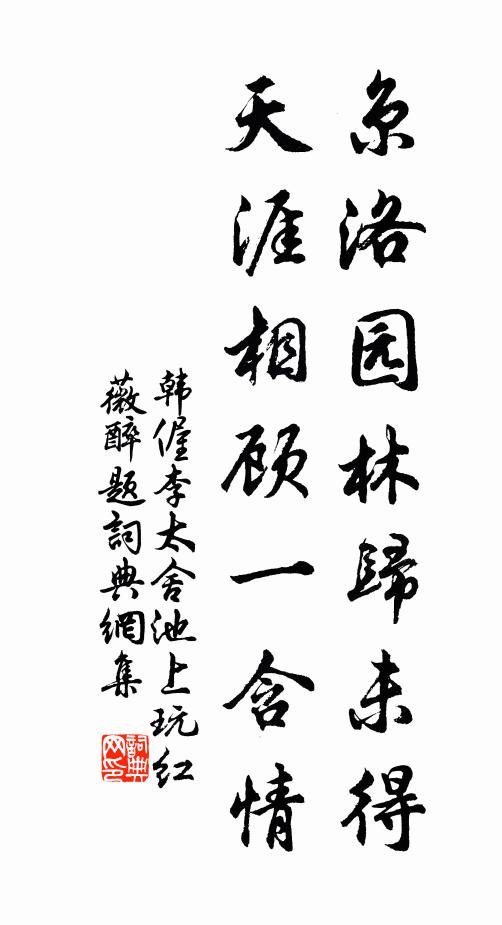 京洛园林歸未得
天涯相顾一含情
韩偓李太舍池上玩红
薇醉题詞典網集
詞典网印